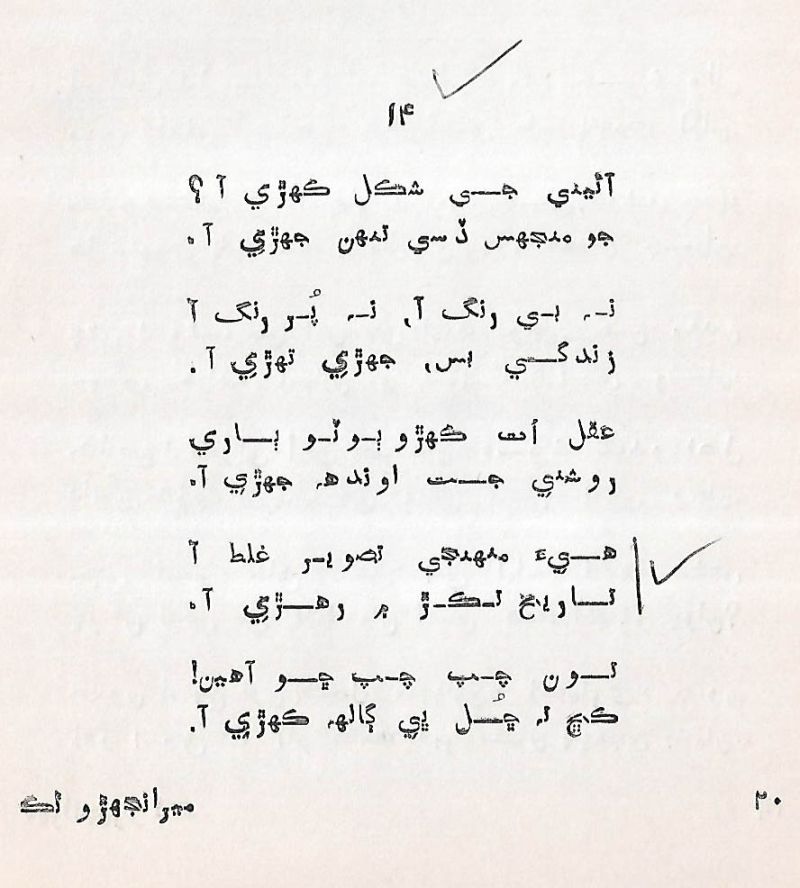 ۱۴
آئيني جي شڪل ڪهڙي آ ؟
جو منجهس ڏسي تنهن جهڙي آ.
نہ بي رنگ آ، نہ پُر رنگ آ
زندگي بس، جهڙي تهڙي آ.
عقل اُت ڪهڙو ٻوٽو ٻاري
روشني جت اوندهہ جهڙي آ.
هيءَ منهنجي تصوير غلط آ
تاريخ لڪڙ ۾ رهڙي آ.
تون چپ چپ ڇو آهين!
ڪڇ تہ ڇُل ٻي ڳالهہ ڪهڙي آ.
۲۰
ميرانجهڙو اڪ